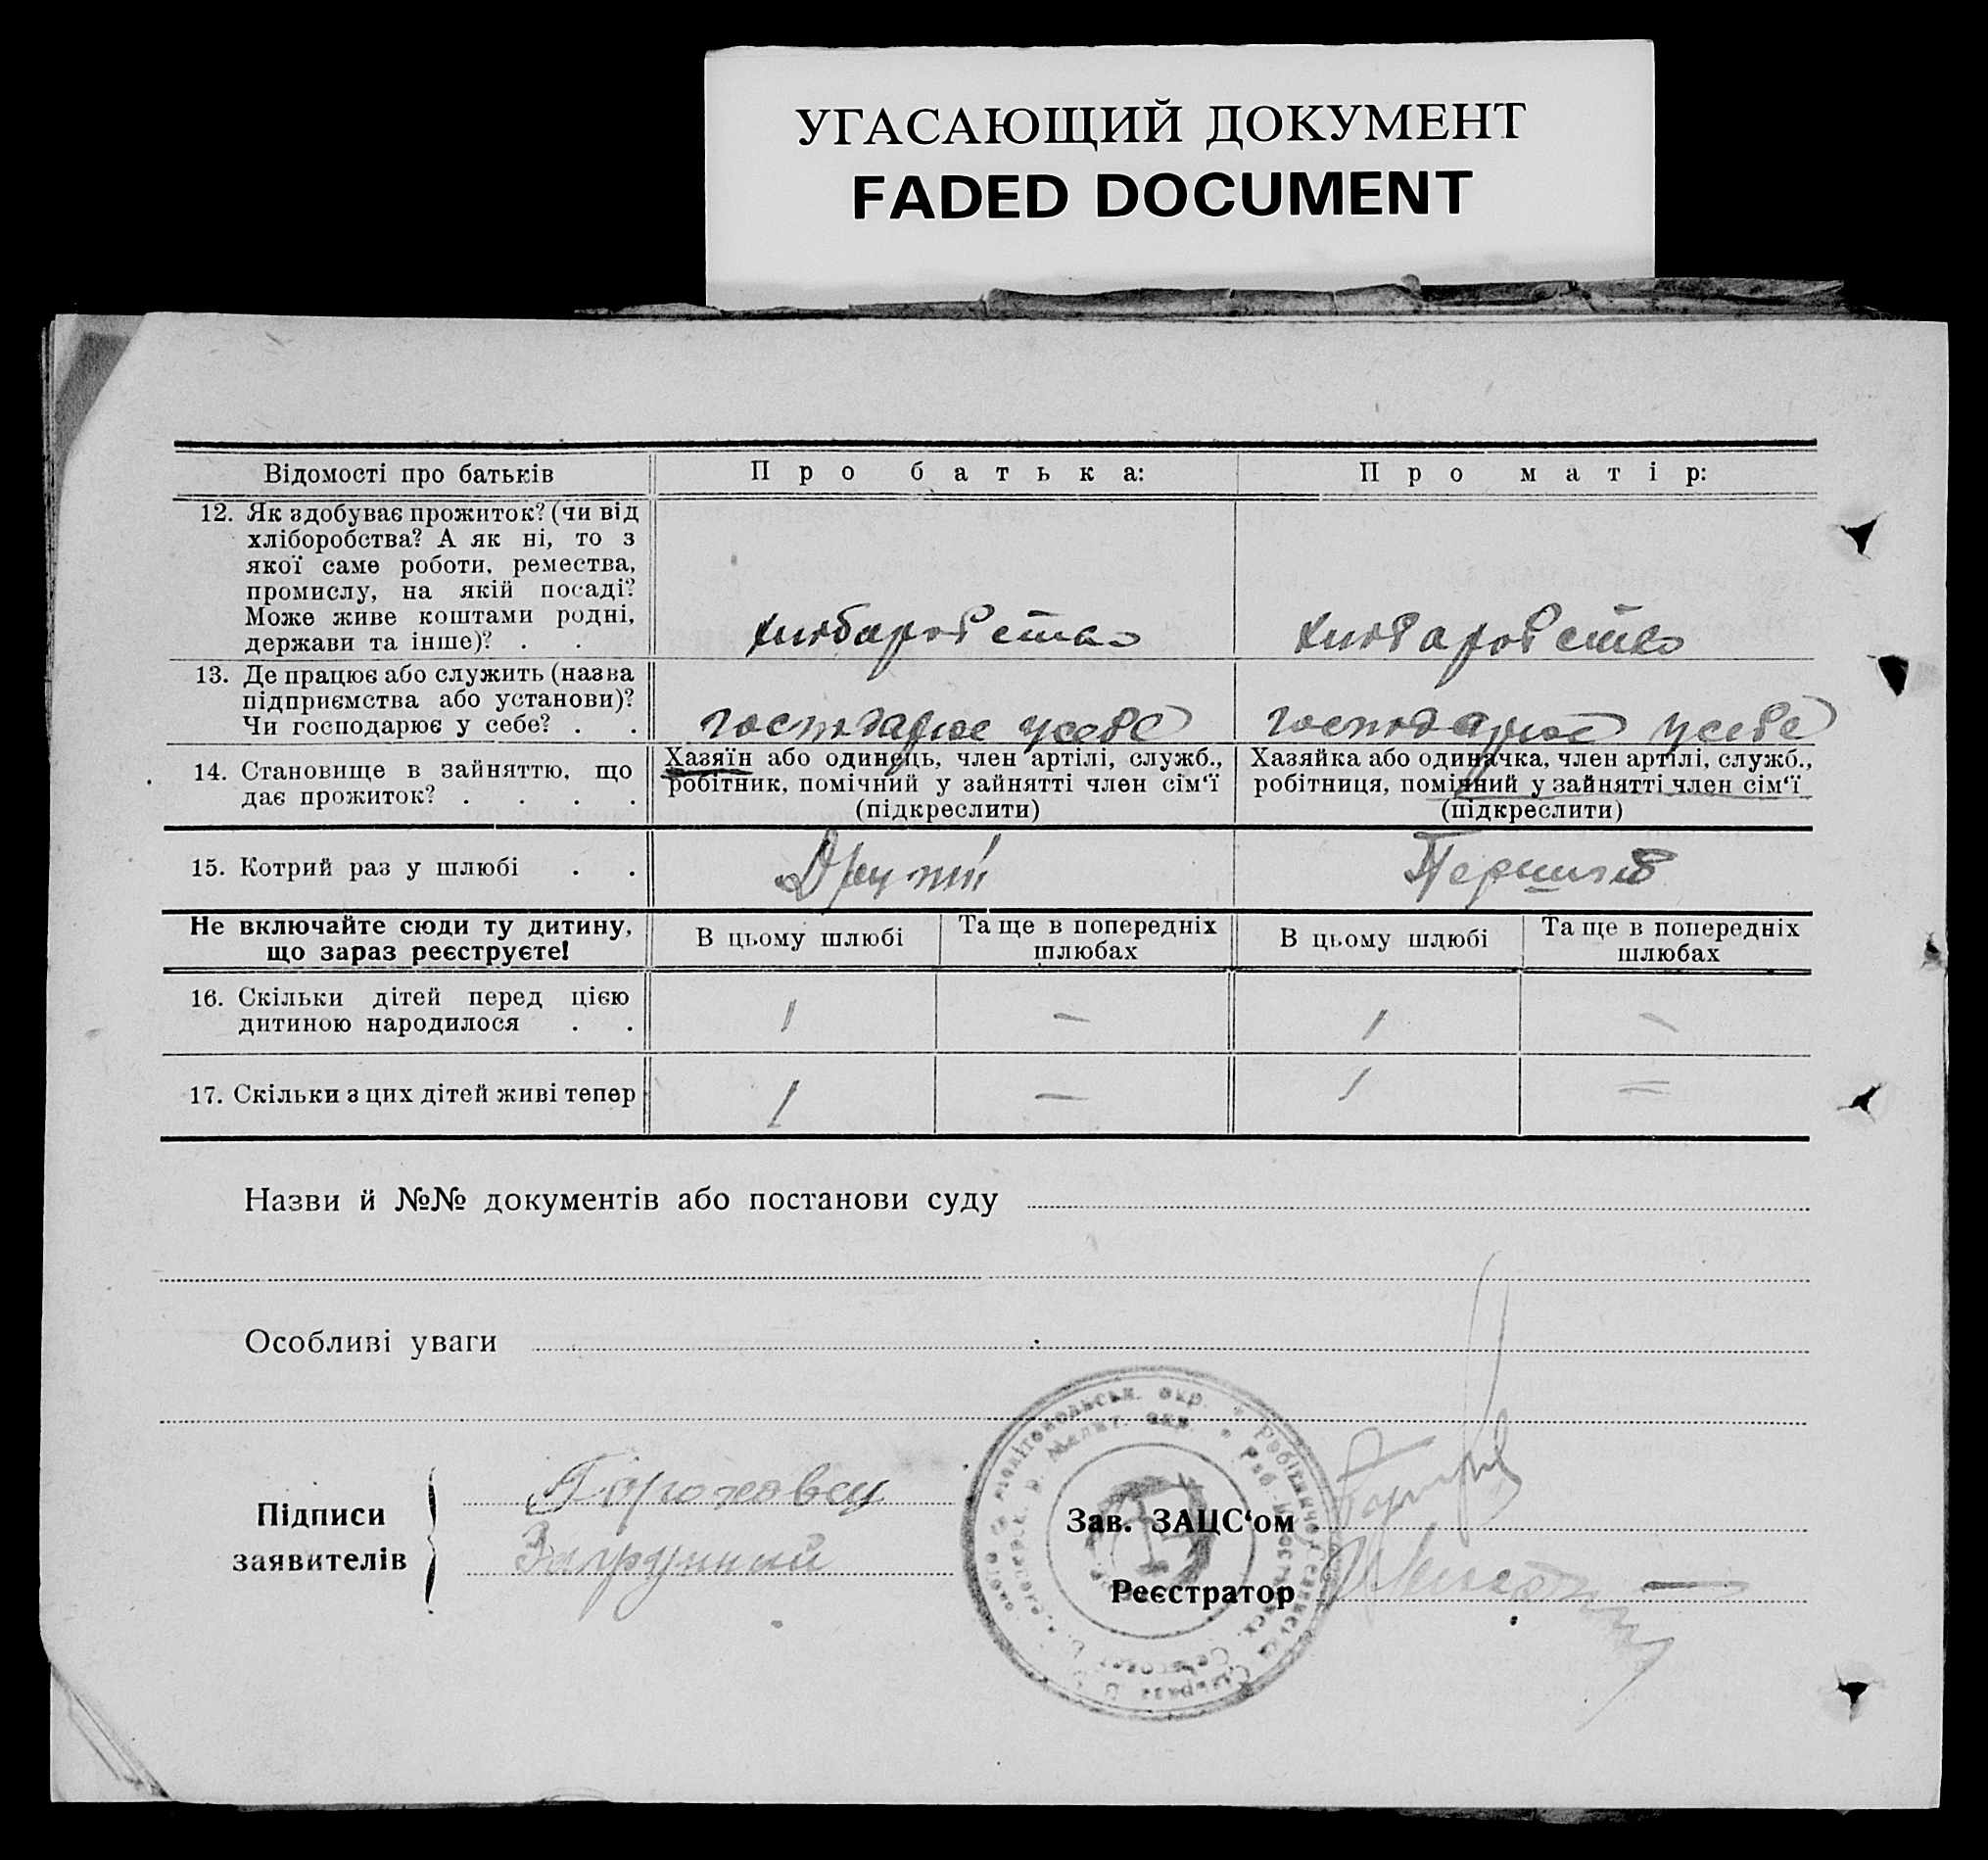 УГАСАЮЩИЙ ДОКУМЕНТ
FADED DOCUMENT
Відомості про батьків
Про батька:
Про матір:
12. Як здобуває прожиток? (чи від
хліборобства? А як ні, то з
якої саме роботи, ремества,
промислу, на якій посаді?
Може живе коштами родні,
держави та інше)? . .
хлібаробство
хлібаробство
13. Де працює або служить (назва
підприємства або установи)?
Чи господарює у себе? . .
господарює у себе
господарює у себе
14. Становище в зайняттю, що
дає прожиток? . . . .
Хазяїн або одинець, член артілі, служб.,
робітник, помічний у зайнятті член сім‘ї
(підкреслити)
Хазяйка або одиначка, член артілі, служб.,
робітниця, помічний у зайнятті член сім‘ї
(підкреслити)
15. Котрий раз у шлюбі . .
Другий
Першій
Не включайте сюди ту дитину,
що зараз реєструєте!
В цьому шлюбі
Та ще в попередніх
шлюбах
В цьому шлюбі
Та ще в попередніх
шлюбах
16. Скільки дітей перед цією
дитиною народилося . .
1
—
1
—
17. Скільки з цих дітей живі тепер
1
—
1
=
Назви й №№ документів або постанови суду
Особливі уваги
Підписи
заявителів
Зав. ЗАЦС‘ом
Реєстратор